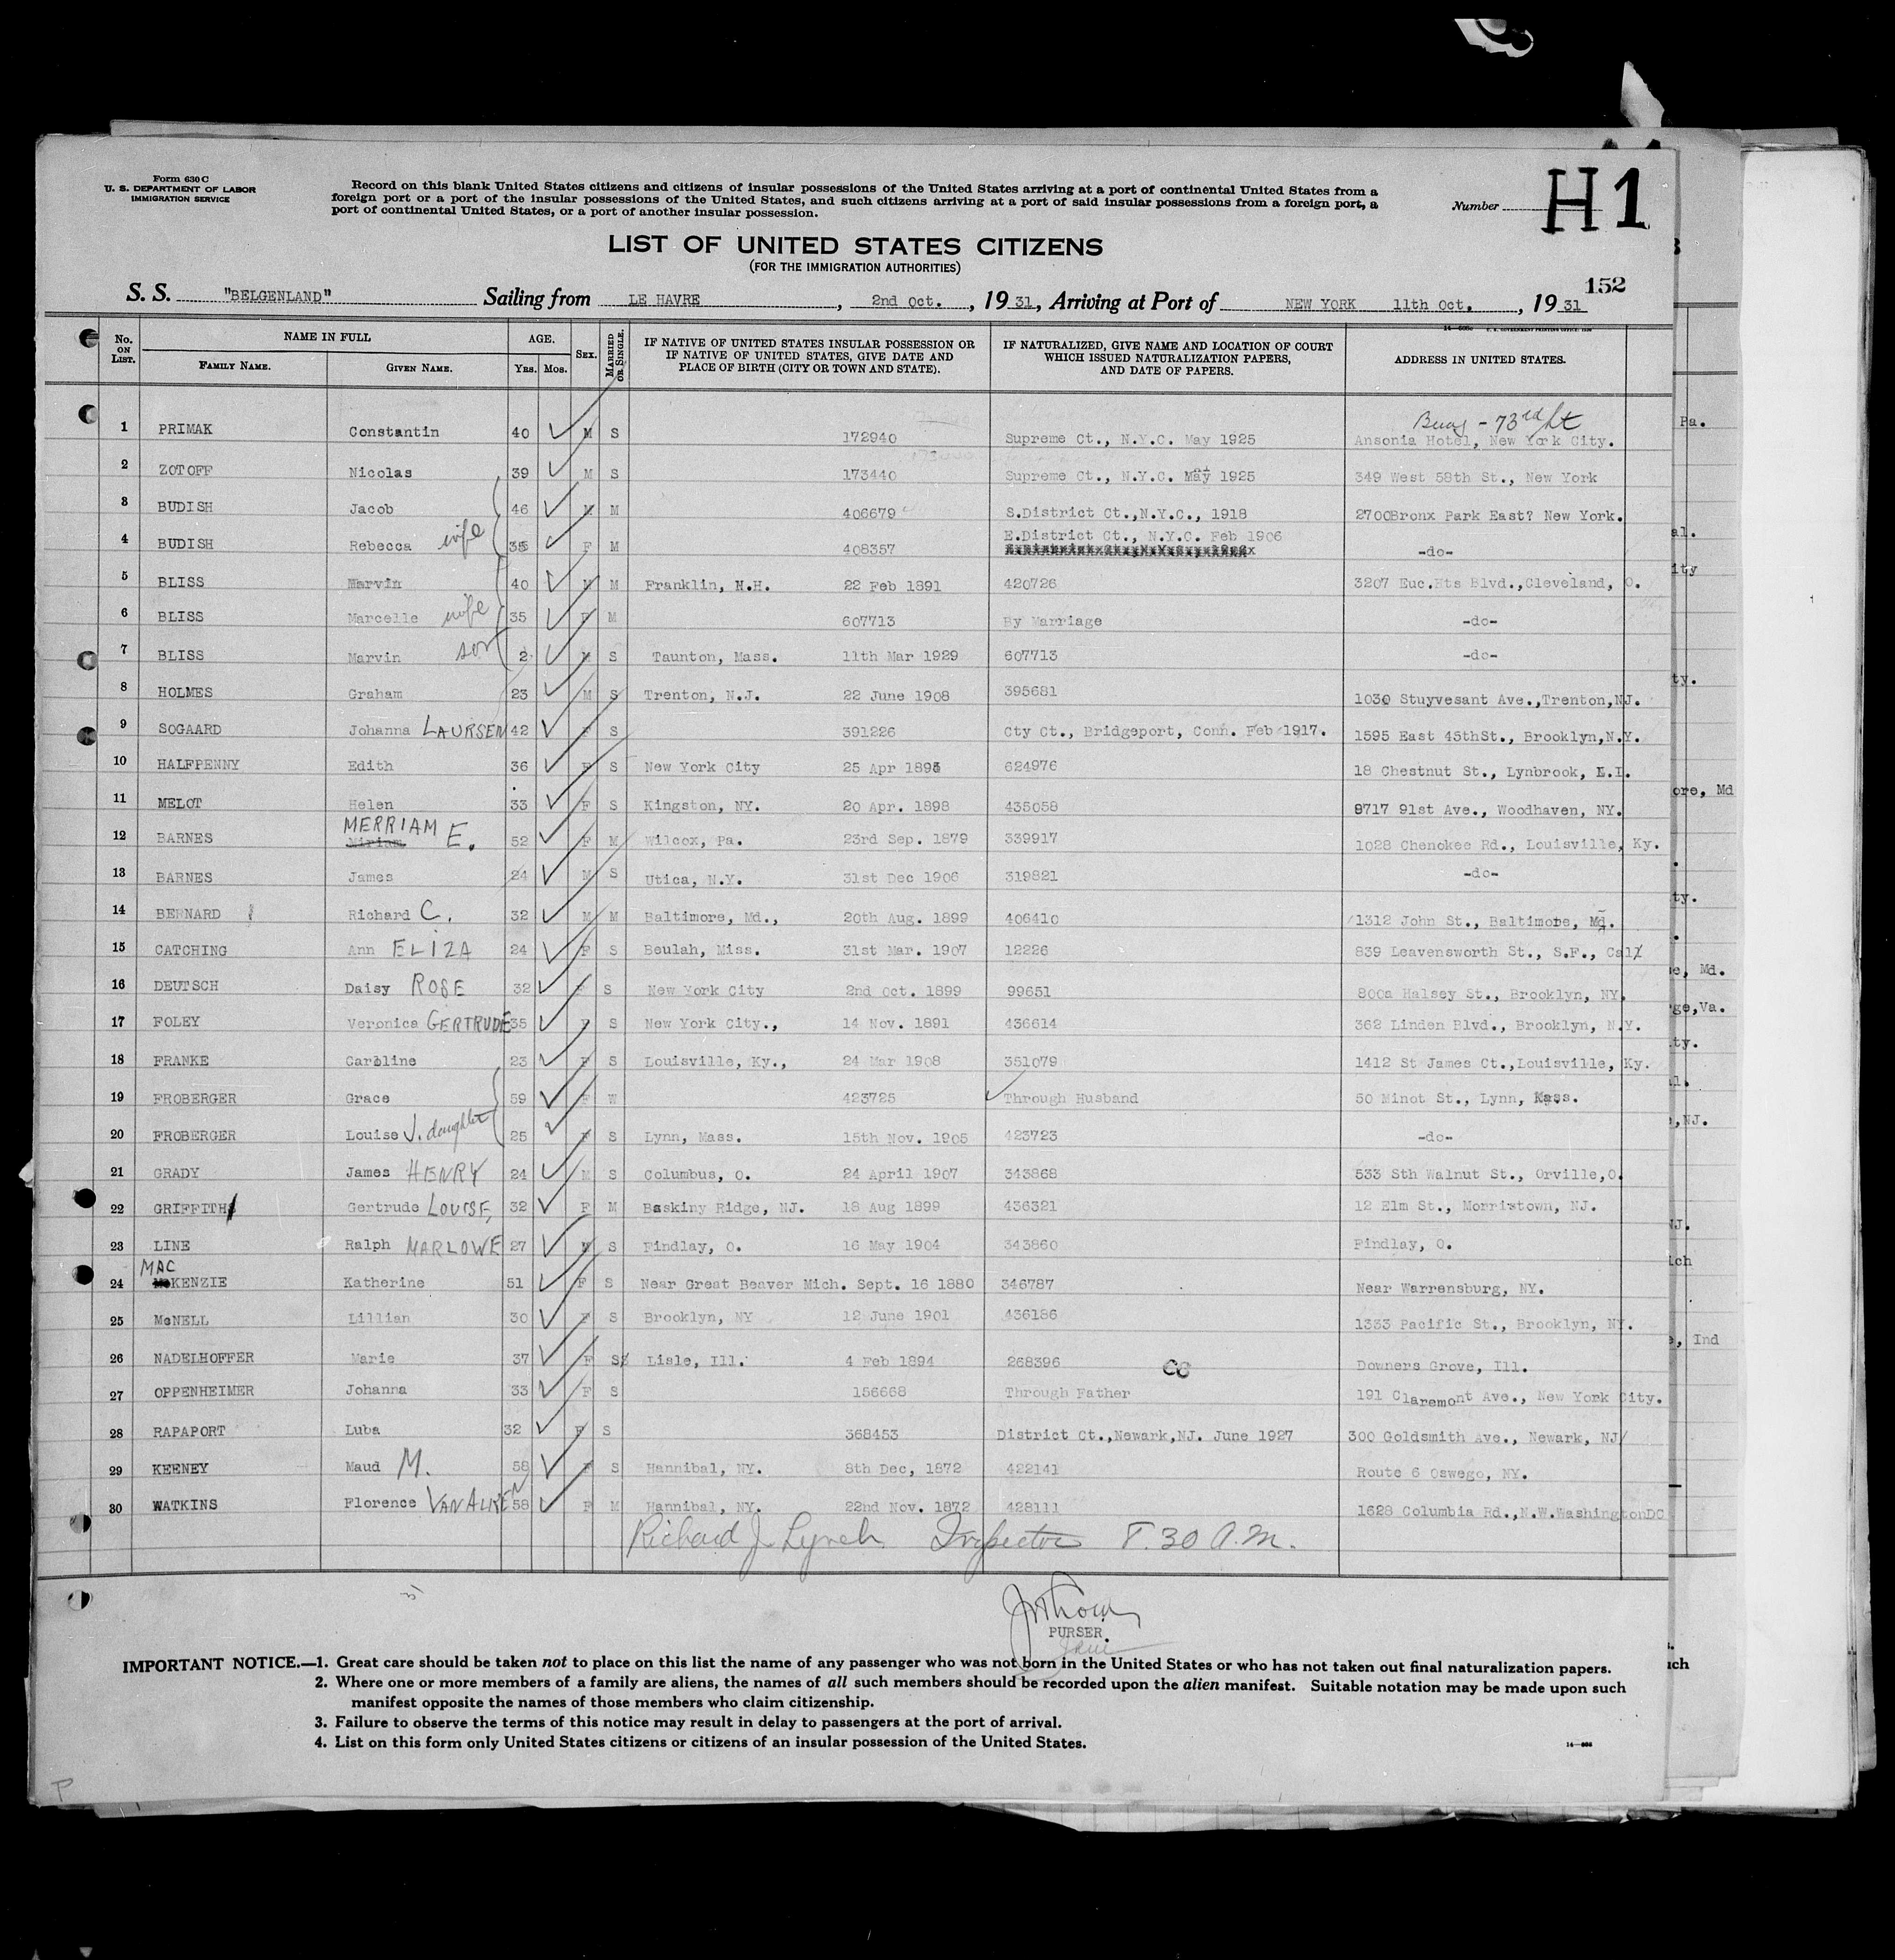 Form 630 C
U. S. DEPARTMENT OF LABOR
IMMIGRATION SERVICE
Record on this blank United States citizens and citizens of insular possessions of the United States arriving at a port of continental United States from a
foreign port or a port of the insular possessions of the United States, and such citizens arriving at a port of said insular possessions from a foreign port, a
port of continental United States, or a port of another insular possession.
Number H1
LIST OF UNITED STATES CITIZENS
(FOR THE IMMIGRATION AUTHORITIES)
152
S. S. "BELGENLAND" Sailing from LE HAVRE, 2nd Oct., 1931, Arriving at Port of NEW YORK 11th Oct., 1931
No. ON LIST. NAME IN FULL FAMILY NAME. GIVEN NAME. AGE. Yrs. Mos. SEX. MARRIED OR SINGLE. IF NATIVE OF UNITED STATES INSULAR POSSESSION OR IF NATIVE OF UNITED STATES, GIVE DATE AND PLACE OF BIRTH (CITY OR TOWN AND STATE). IF NATURALIZED, GIVE NAME AND LOCATION OF COURT WHICH ISSUED NATURALIZATION PAPERS, AND DATE OF PAPERS. ADDRESS IN UNITED STATES.
73rd St
1 PRIMAK Constantin 40 M S 172940 Supreme Ct., N.Y.C. May 1925 Ansonia Hotel, New York City.
2 ZOTOFF Nicolas 39 M S 173440 Supreme Ct., N.Y.C. May 1925 349 West 58th St., New York
3 BUDISH Jacob 46 M M 406679 S.District Ct.,N.Y.C., 1918 2700Bronx Park East? New York.
4 BUDISH Rebecca wife 35 F M 408357 E.District Ct., N.Y.C. Feb 1906 -do-
5 BLISS Marvin 40 M M Franklin, N.H. 22 Feb 1891 420726 3207 Euc.Hts Blvd.,Cleveland, O.
6 BLISS Marcelle wife 35 F M 607713 By Marriage -do-
7 BLISS Marvin son 2 M S Taunton, Mass. 11th Mar 1929 607713 -do-
8 HOLMES Graham 23 M S Trenton, N.J. 22 June 1908 395681 1030 Stuyvesant Ave.,Trenton,NJ.
9 SOGAARD Johanna LAURSEN 42 F S 391226 Cty Ct., Bridgeport, Conn. Feb 1917. 1595 East 45thSt., Brooklyn,N.Y.
10 HALFPENNY Edith 36 F S New York City 25 Apr 1895 624976 18 Chestnut St., Lynbrook, L.I.
11 MELOT Helen 33 F S Kingston, NY. 20 Apr. 1898 435058 8717 91st Ave., Woodhaven, NY.
12 BARNES MERRIAM E. 52 F M Wilcox, Pa. 23rd Sep. 1879 339917 1028 Chenokee Rd., Louisville, Ky.
13 BARNES James 24 M S Utica, N.Y. 31st Dec 1906 319821 -do-
14 BERNARD Richard C. 32 M M Baltimore, Md., 20th Aug. 1899 406410 1312 John St., Baltimore, Md.
15 CATCHING Ann ELIZA 24 F S Beulah, Miss. 31st Mar. 1907 12226 839 Leavensworth St., S.F., Cal
16 DEUTSCH Daisy ROSE 32 F S New York City 2nd Oct. 1899 99651 800a Halsey St., Brooklyn, NY.
17 FOLEY Veronica GERTRUDE 35 F S New York City., 14 Nov. 1891 436614 362 Linden Blvd., Brooklyn, N.Y.
18 FRANKE Caroline 23 F S Louisville, Ky., 24 Mar 1908 351079 1412 St James Ct.,Louisville, Ky.
19 FROBERGER Grace 59 F W 423725 Through Husband 50 Minot St., Lynn, Mass.
20 FROBERGER Louise J. daughter 25 F S Lynn, Mass. 15th Nov. 1905 423723 -do-
21 GRADY James HENRY 24 M S Columbus, O. 24 April 1907 343868 533 Sth Walnut St., Orville,O.
22 GRIFFITH Gertrude LOUISE, 32 F M Baskiny Ridge, NJ. 18 Aug 1899 436321 12 Elm St., Morristown, NJ.
23 LINE Ralph MARLOWE 27 M S Findlay, O. 16 May 1904 343860 Findlay, O.
24 MACKENZIE Katherine 51 F S Near Great Beaver Mich. Sept. 16 1880 346787 Near Warrensburg, NY.
25 McNELL Lillian 30 F S Brooklyn, NY 12 June 1901 436186 1333 Pacific St., Brooklyn, NY.
26 NADELHOFFER Marie 37 F S Lisle, Ill. 4 Feb 1894 268396 Downers Grove, Ill.
27 OPPENHEIMER Johanna 33 F S 156668 Through Father 191 Claremont Ave., New York City.
28 RAPAPORT Luba 32 F S 368453 District Ct.,Newark,NJ. June 1927 300 Goldsmith Ave., Newark, NJ
29 KEENEY Maud M. 58 F S Hannibal, NY. 8th Dec, 1872 422141 Route 6 Oswego, NY.
30 WATKINS Florence VAN ALKEN 58 F M Hannibal, NY. 22nd Nov. 1872 428111 1628 Columbia Rd.,N.W.WashingtonDC
Richard J Lynch Inspector 8.30 A.M.
PURSER.
IMPORTANT NOTICE.—1. Great care should be taken not to place on this list the name of any passenger who was not born in the United States or who has not taken out final naturalization papers.
2. Where one or more members of a family are aliens, the names of all such members should be recorded upon the alien manifest. Suitable notation may be made upon such
manifest opposite the names of those members who claim citizenship.
3. Failure to observe the terms of this notice may result in delay to passengers at the port of arrival.
4. List on this form only United States citizens or citizens of an insular possession of the United States.